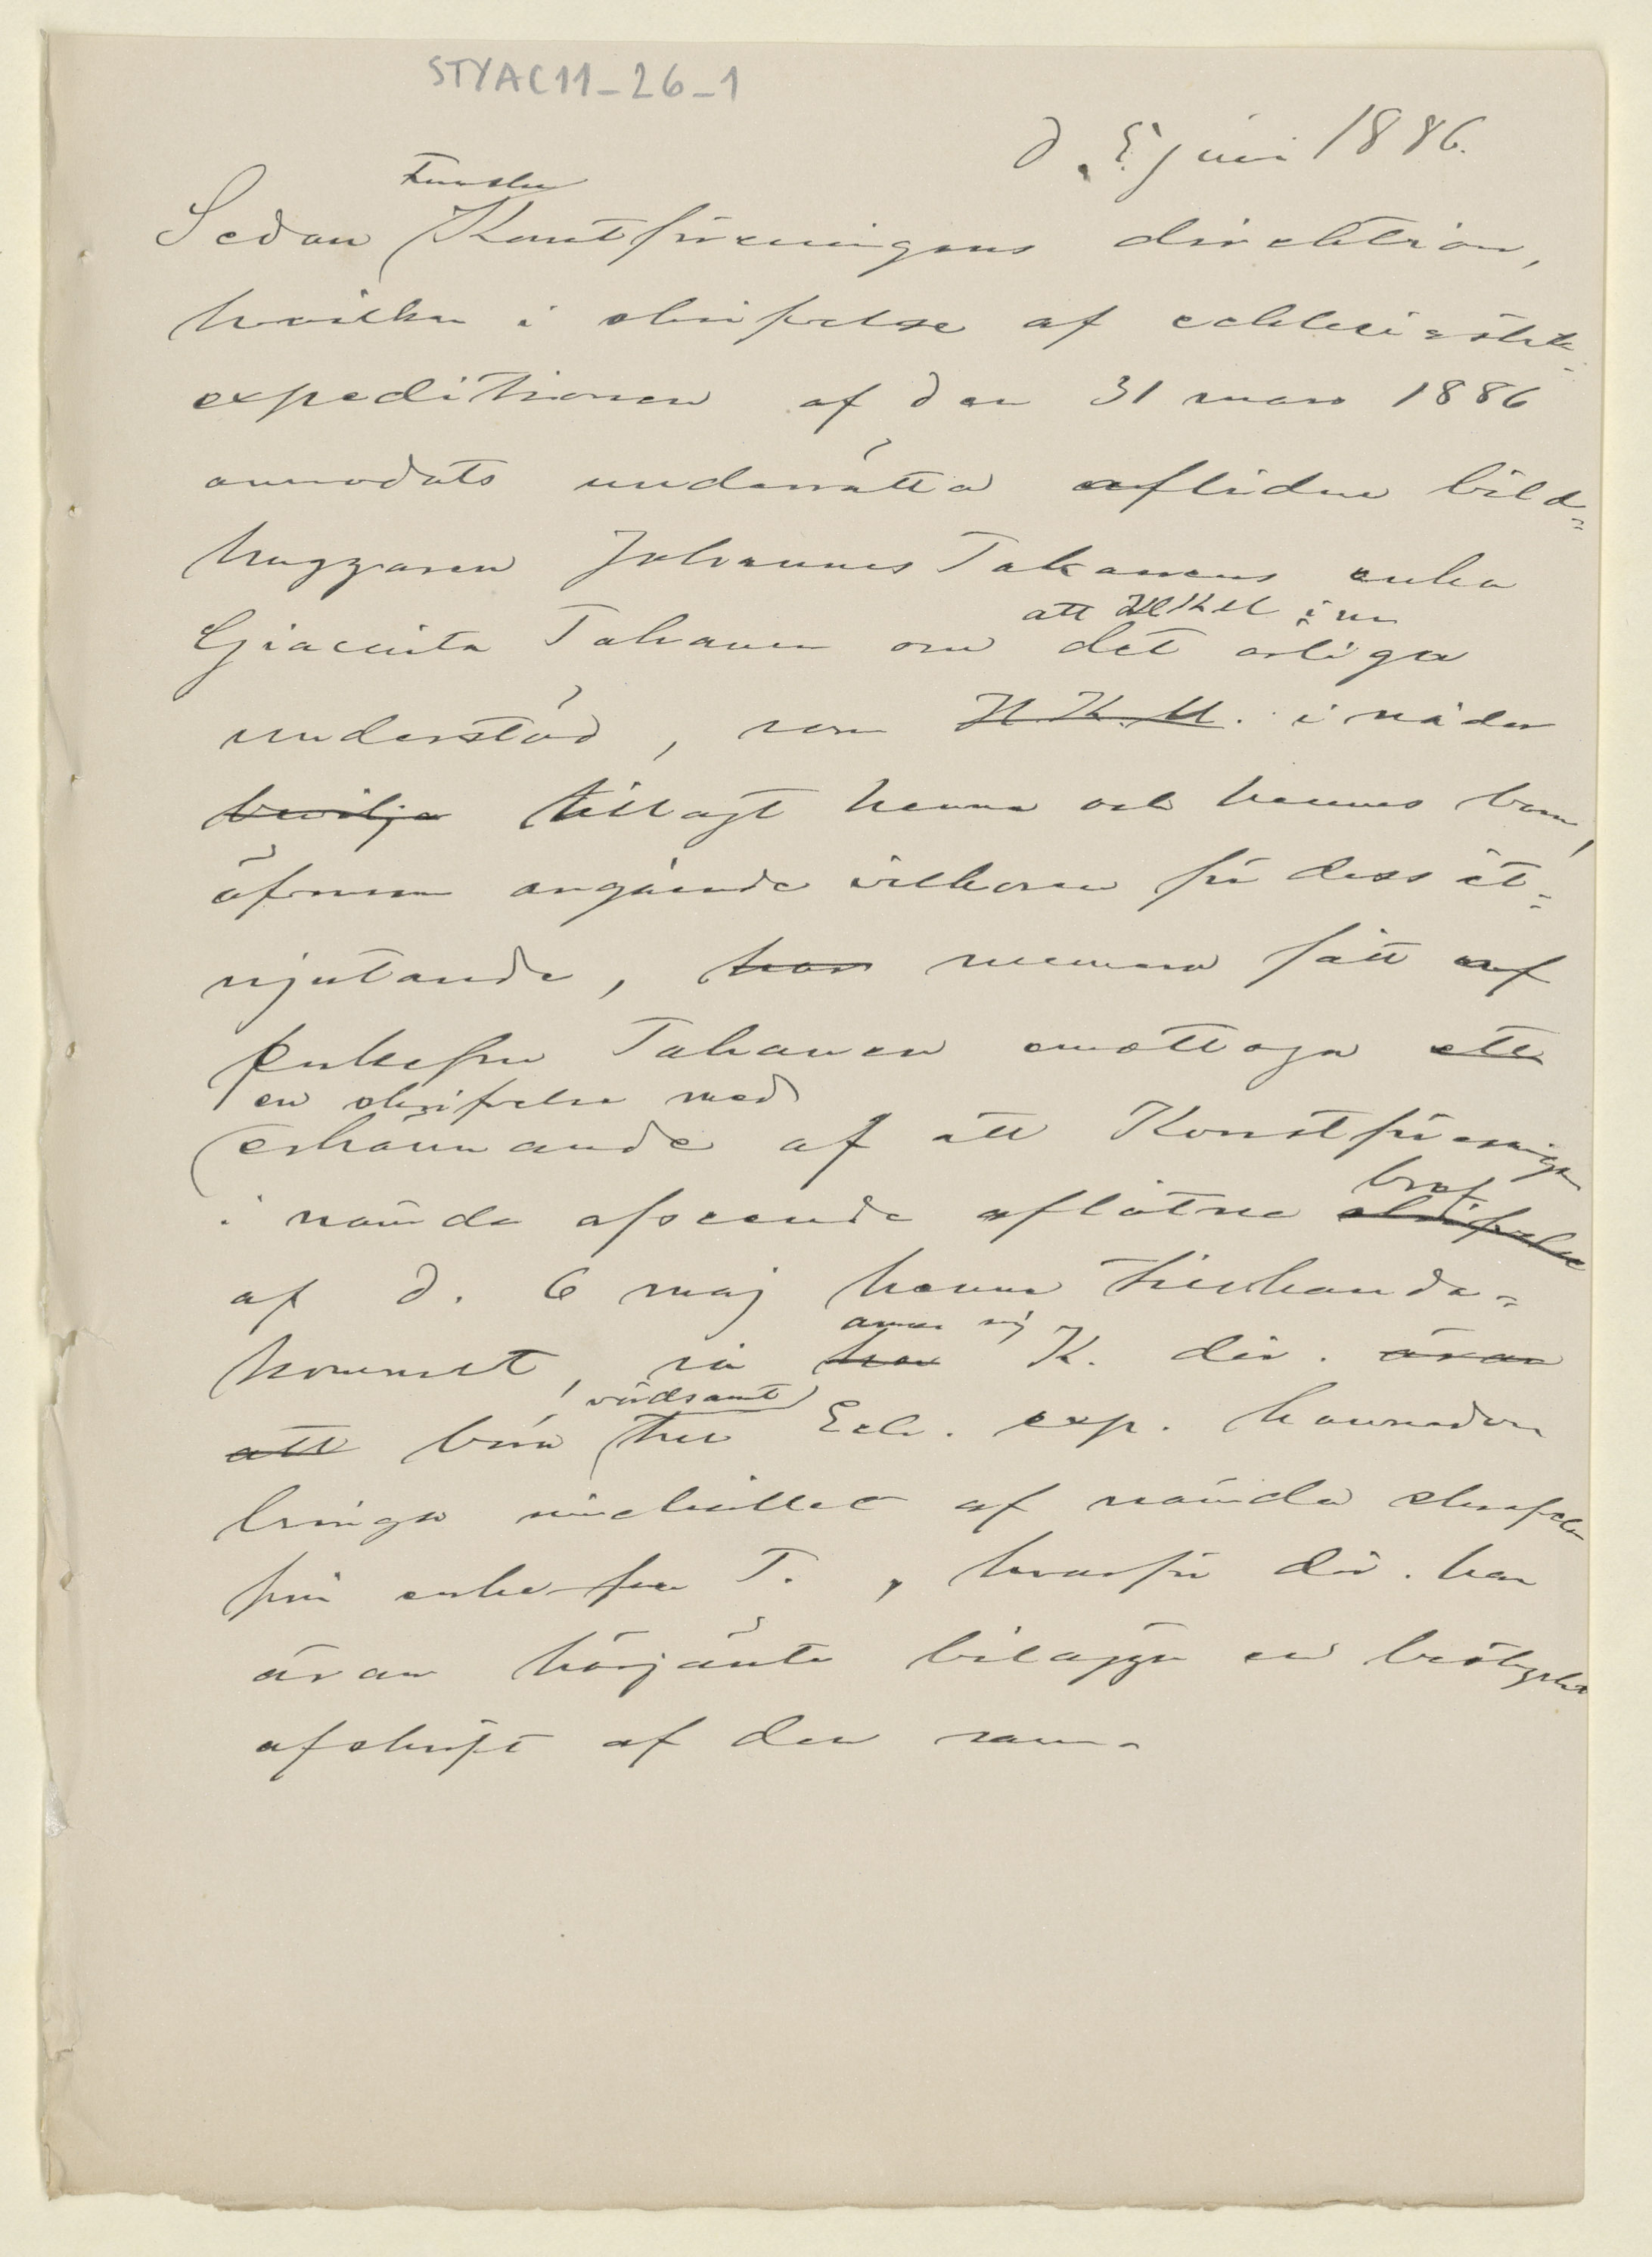 STYAC11_26_1
d. 5 juni 1886.
Finska
Sedan Konstföreningens direktion,
hvilken i skrifvelse af ecklesiastik-
expeditionen af den 31 mars 1886
anmodats underrätta aflidne bild-
huggaren Johannes Takanens enka
att HKM i nu
Giacinta Takanen om det årliga
understöd, som H. K. M. i nåder
bevilja tillagt henne och hennes barn,
äfvensom angående vilkoren för dess åt-
njutande, har numera fått af
Enkefru Takanen emottaga ett
en skrifvelse med
erkännande af att Konstföreningen
bref
i nämnda afseende aflåtne skrifvelse
af d. 6 maj henne tillhanda-
kommet, så
anser sig
har K. dir. äran
vördsamt
att böra till Eckl. exp. kännedom
bringa innehållet af nämnda skrifvelse
från enkefru T., hvarför dir. har
äran härjänte bilägga en bestyrkt
afskrift af den samma